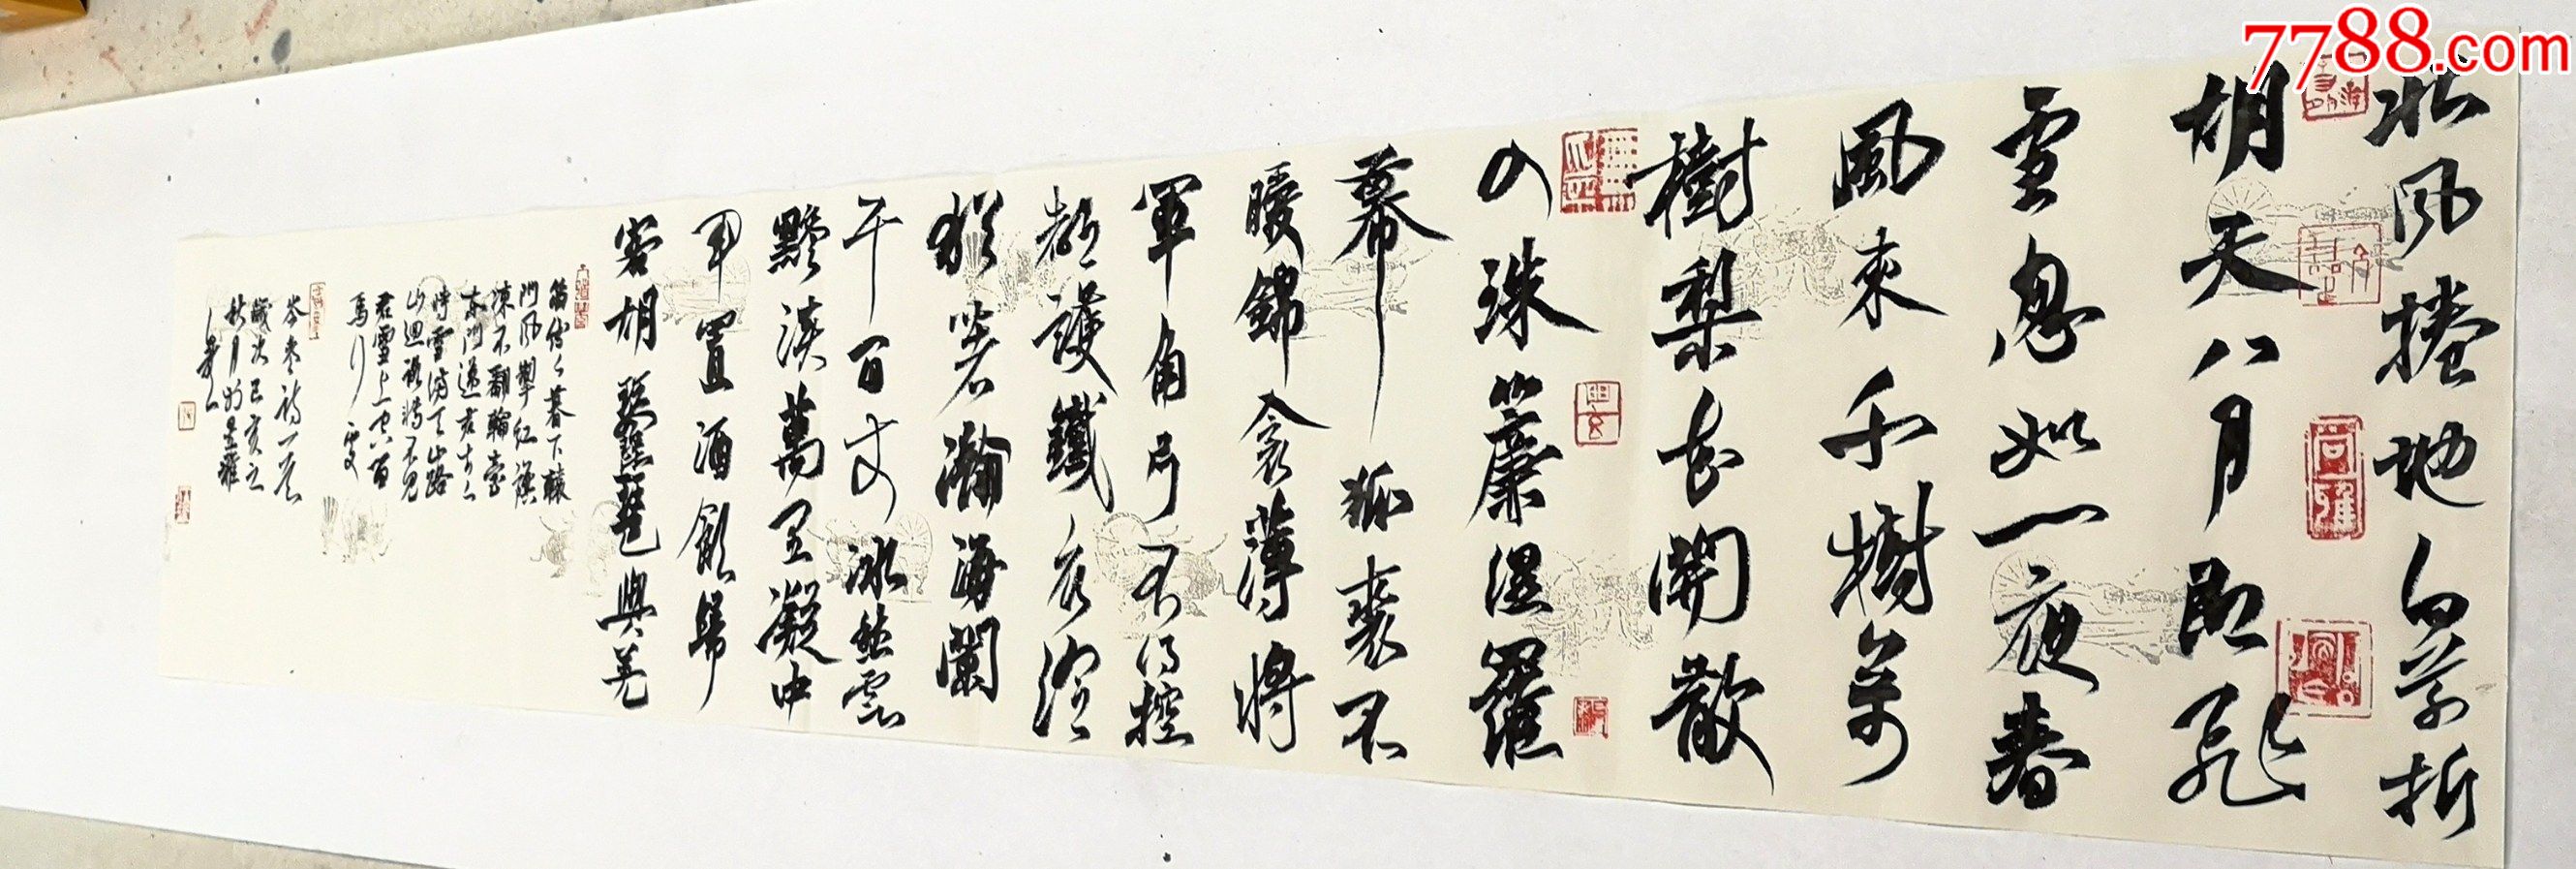 7788.com
北風捲地白草折
胡天八月即飛
雪忽如一夜春
風來千樹萬
樹梨花開散
入珠簾濕羅
幕狐裘不
暖錦衾薄將
軍角弓不得控
都護鐵衣冷
猶著瀚海闌
干百丈冰愁雲
黲淡萬里凝中
軍置酒飲歸
客胡琴琵琶與羌
笛紛々暮下轅
門風掣紅旗
凍不翻輪臺
東門送君去々
時雪滿天山路
山迴路轉不見
君雪上空留
馬行處
岑參詩一首
歲次己亥之
秋月
尚雅